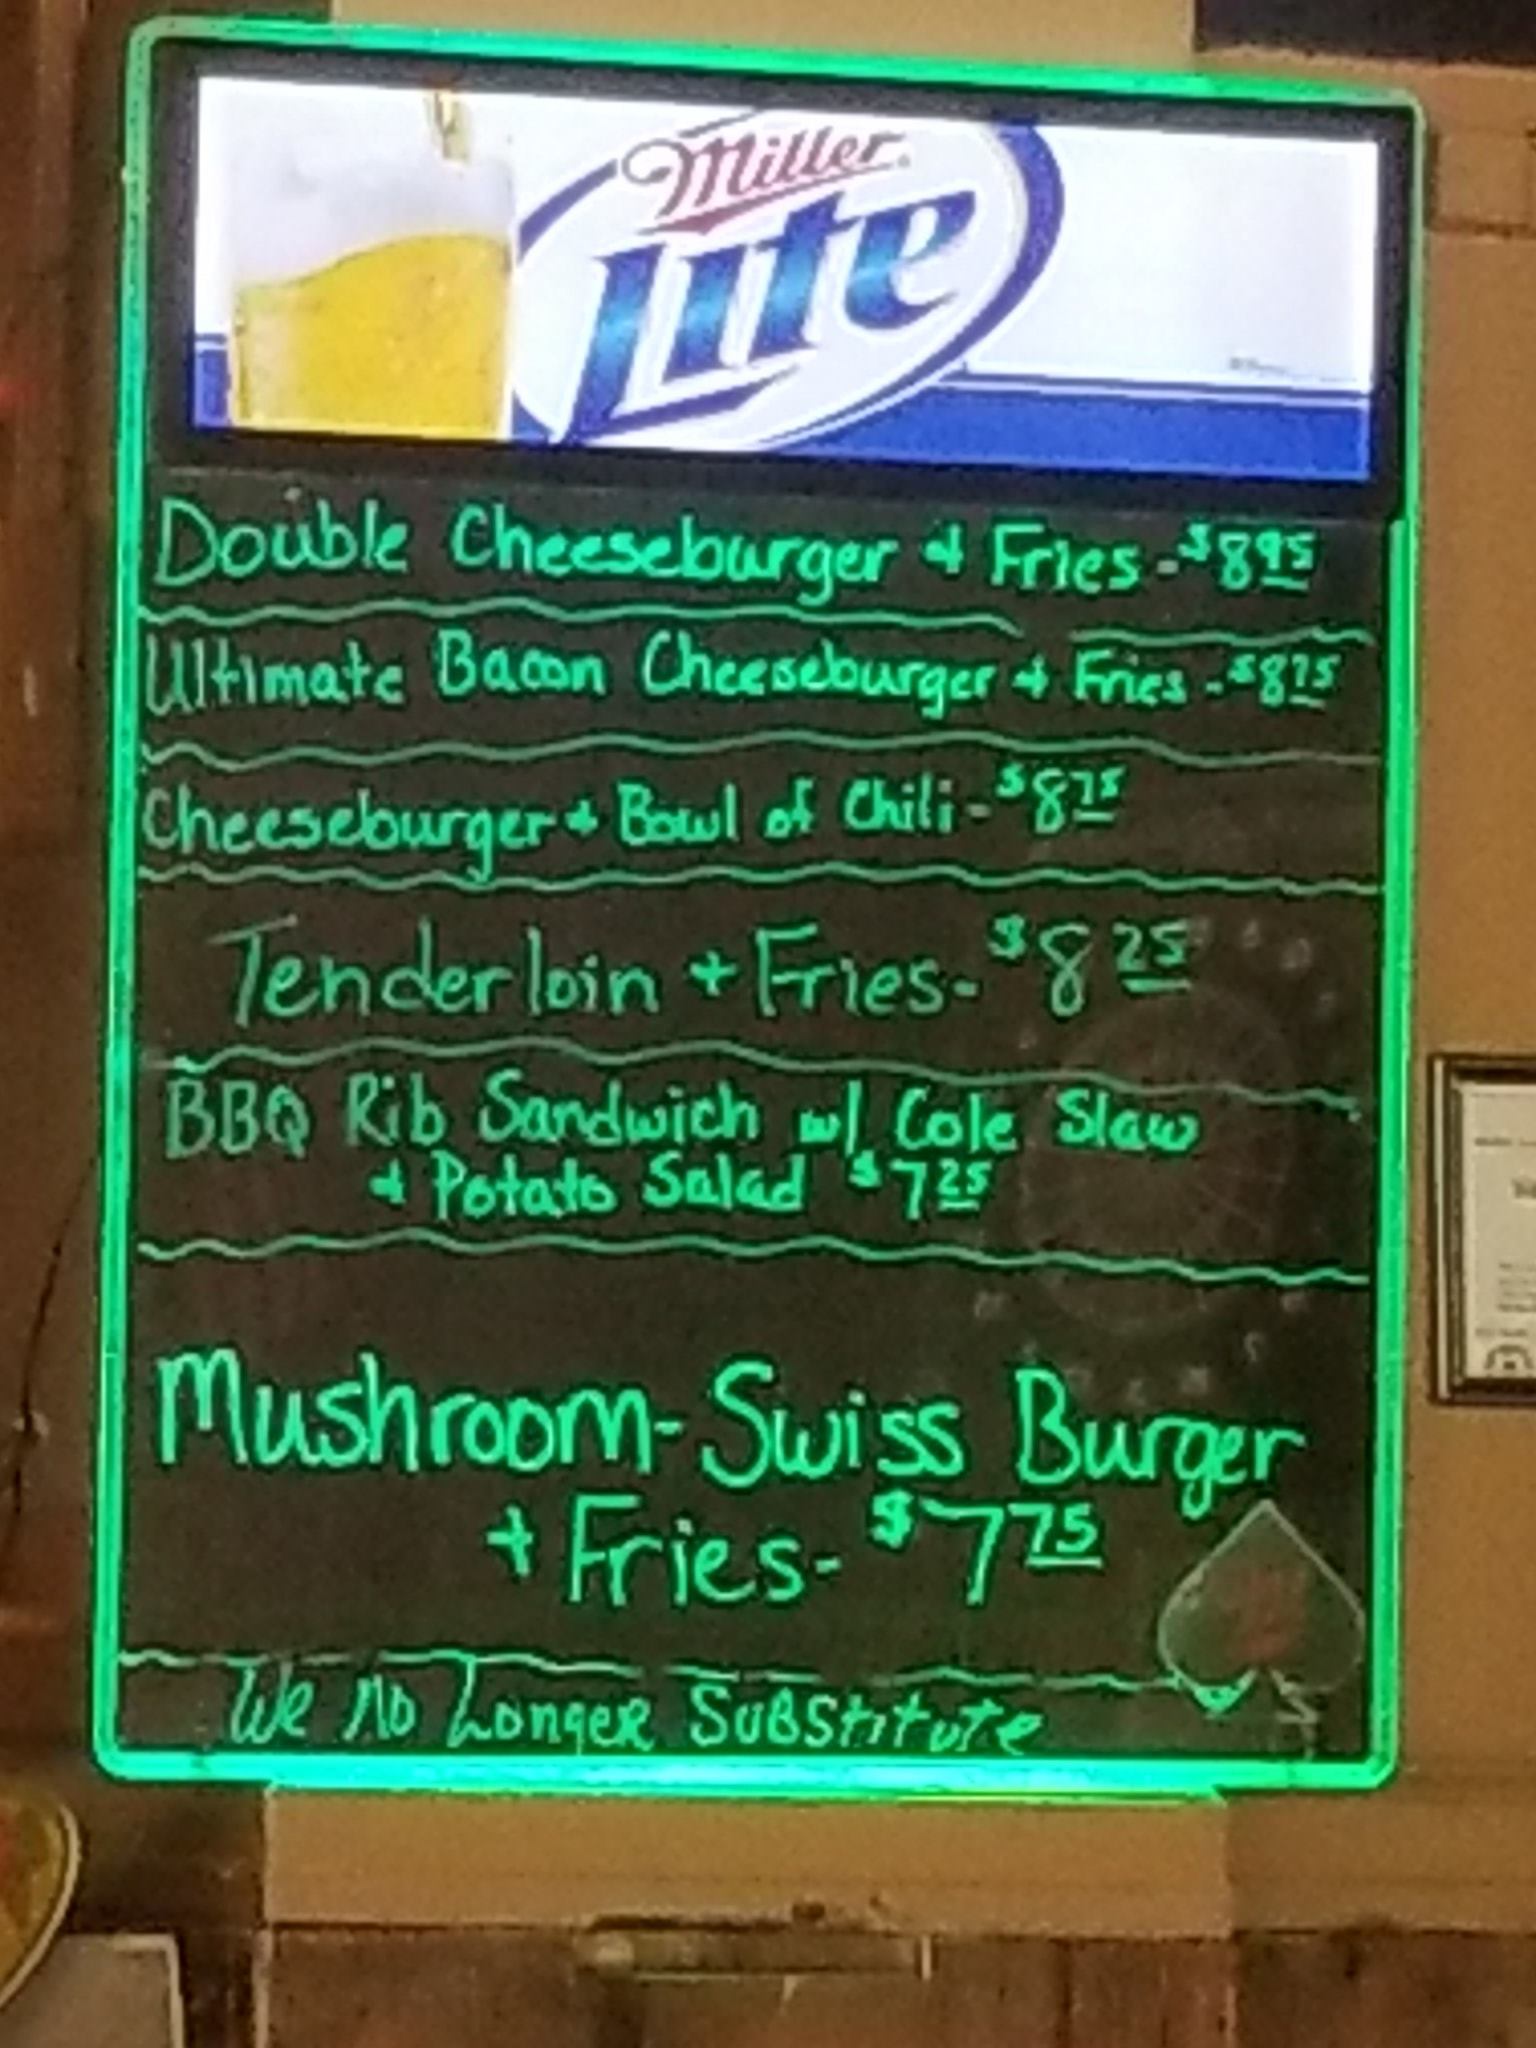 Miller
Lite
Double Cheeseburger + Fries - $8 95
Ultimate Bacon Cheeseburger + Fries - $8 75
Cheeseburger + Bowl of Chili - $8 75
Tenderloin + Fries - $8 25
BBQ Rib Sandwich w/ Cole Slaw
+ Potato Salad $7 25
Mushroom-Swiss Burger
+ Fries - $7 75
We No Longer Substitute